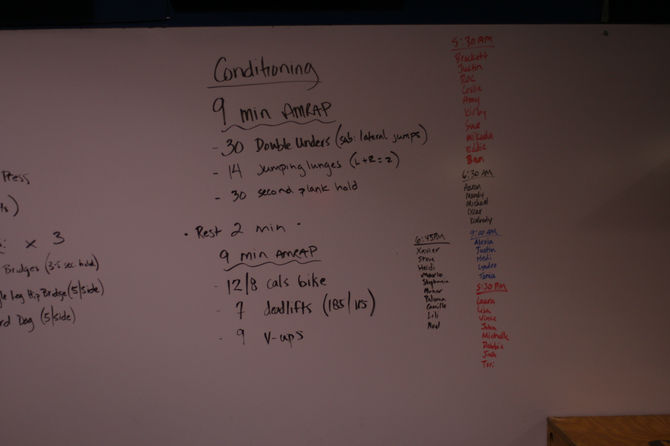 Press
x 3
Bridges (3-5 sec hold)
Leg Hip Bridge (5/side)
Dog (5/side)
Conditioning
9 min AMRAP
- 30 Double Unders (sub: lateral jumps)
- 14 Jumping lunges (L+R=2)
- 30 second plank hold
• Rest 2 min -
9 min AMRAP
- 12/8 cals bike
- 7 deadlifts (185/115)
- 9 V-ups
6:45PM
Xavier
Steve
Heidi
Maria
Stephanie
Paloma
Camille
Lili
Noel
5:30 AM
Brockett
Justin
Roc
Leslie
Amy
Kirby
Sue
Mikela
Eddie
Ben
6:30 AM
Aaron
Mandy
Michael
Oscar
9:00 AM
Alexia
Justin
Hedi
Lyndre
Tania
5:30 PM
Laura
Lisa
Vince
John
Michelle
Debbie
Josh
Tori